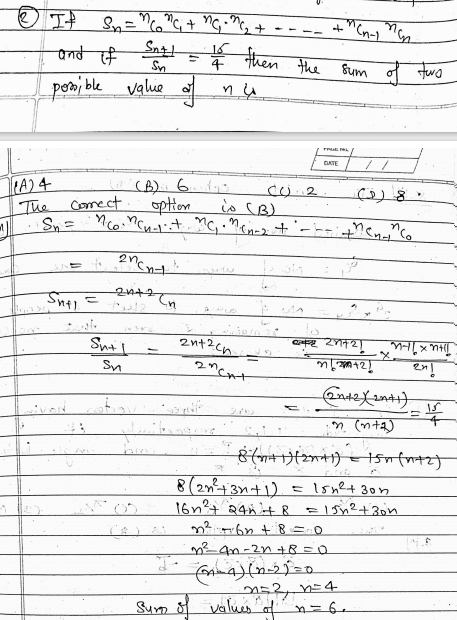 ② If Sₙ = ⁿC₀ ⁿC₁ + ⁿC₁·ⁿC₂ + ----- + ⁿCₙ₋₁ ⁿCₙ
and if Sₙ₊₁/Sₙ = 15/4 then the sum of two
possible value of n is
PAGE NO.
DATE / /
(A) 4 (B) 6 (C) 2 (D) 8.
The correct option is (B)
Sₙ = ⁿC₀·ⁿCₙ₋₁ + ⁿC₁·ⁿCₙ₋₂ + ---- + ⁿCₙ₋₁ ⁿC₀
= ²ⁿCₙ₋₁
Sₙ₊₁ = ²ⁿ⁺²Cₙ
Sₙ₊₁/Sₙ = ²ⁿ⁺²Cₙ/²ⁿCₙ₋₁ = 2n+2!/n! n+2! × n-1! × n+1!/2n!
= (2n+2)(2n+1)/n (n+2) = 15/4
8(n+1)(2n+1) = 15n(n+2)
8(2n²+3n+1) = 15n²+30n
16n²+24n+8 = 15n²+30n
n²-6n+8=0
n²-4n-2n+8=0
(n-4)(n-2)=0
n=2, n=4
Sum of values of n=6.